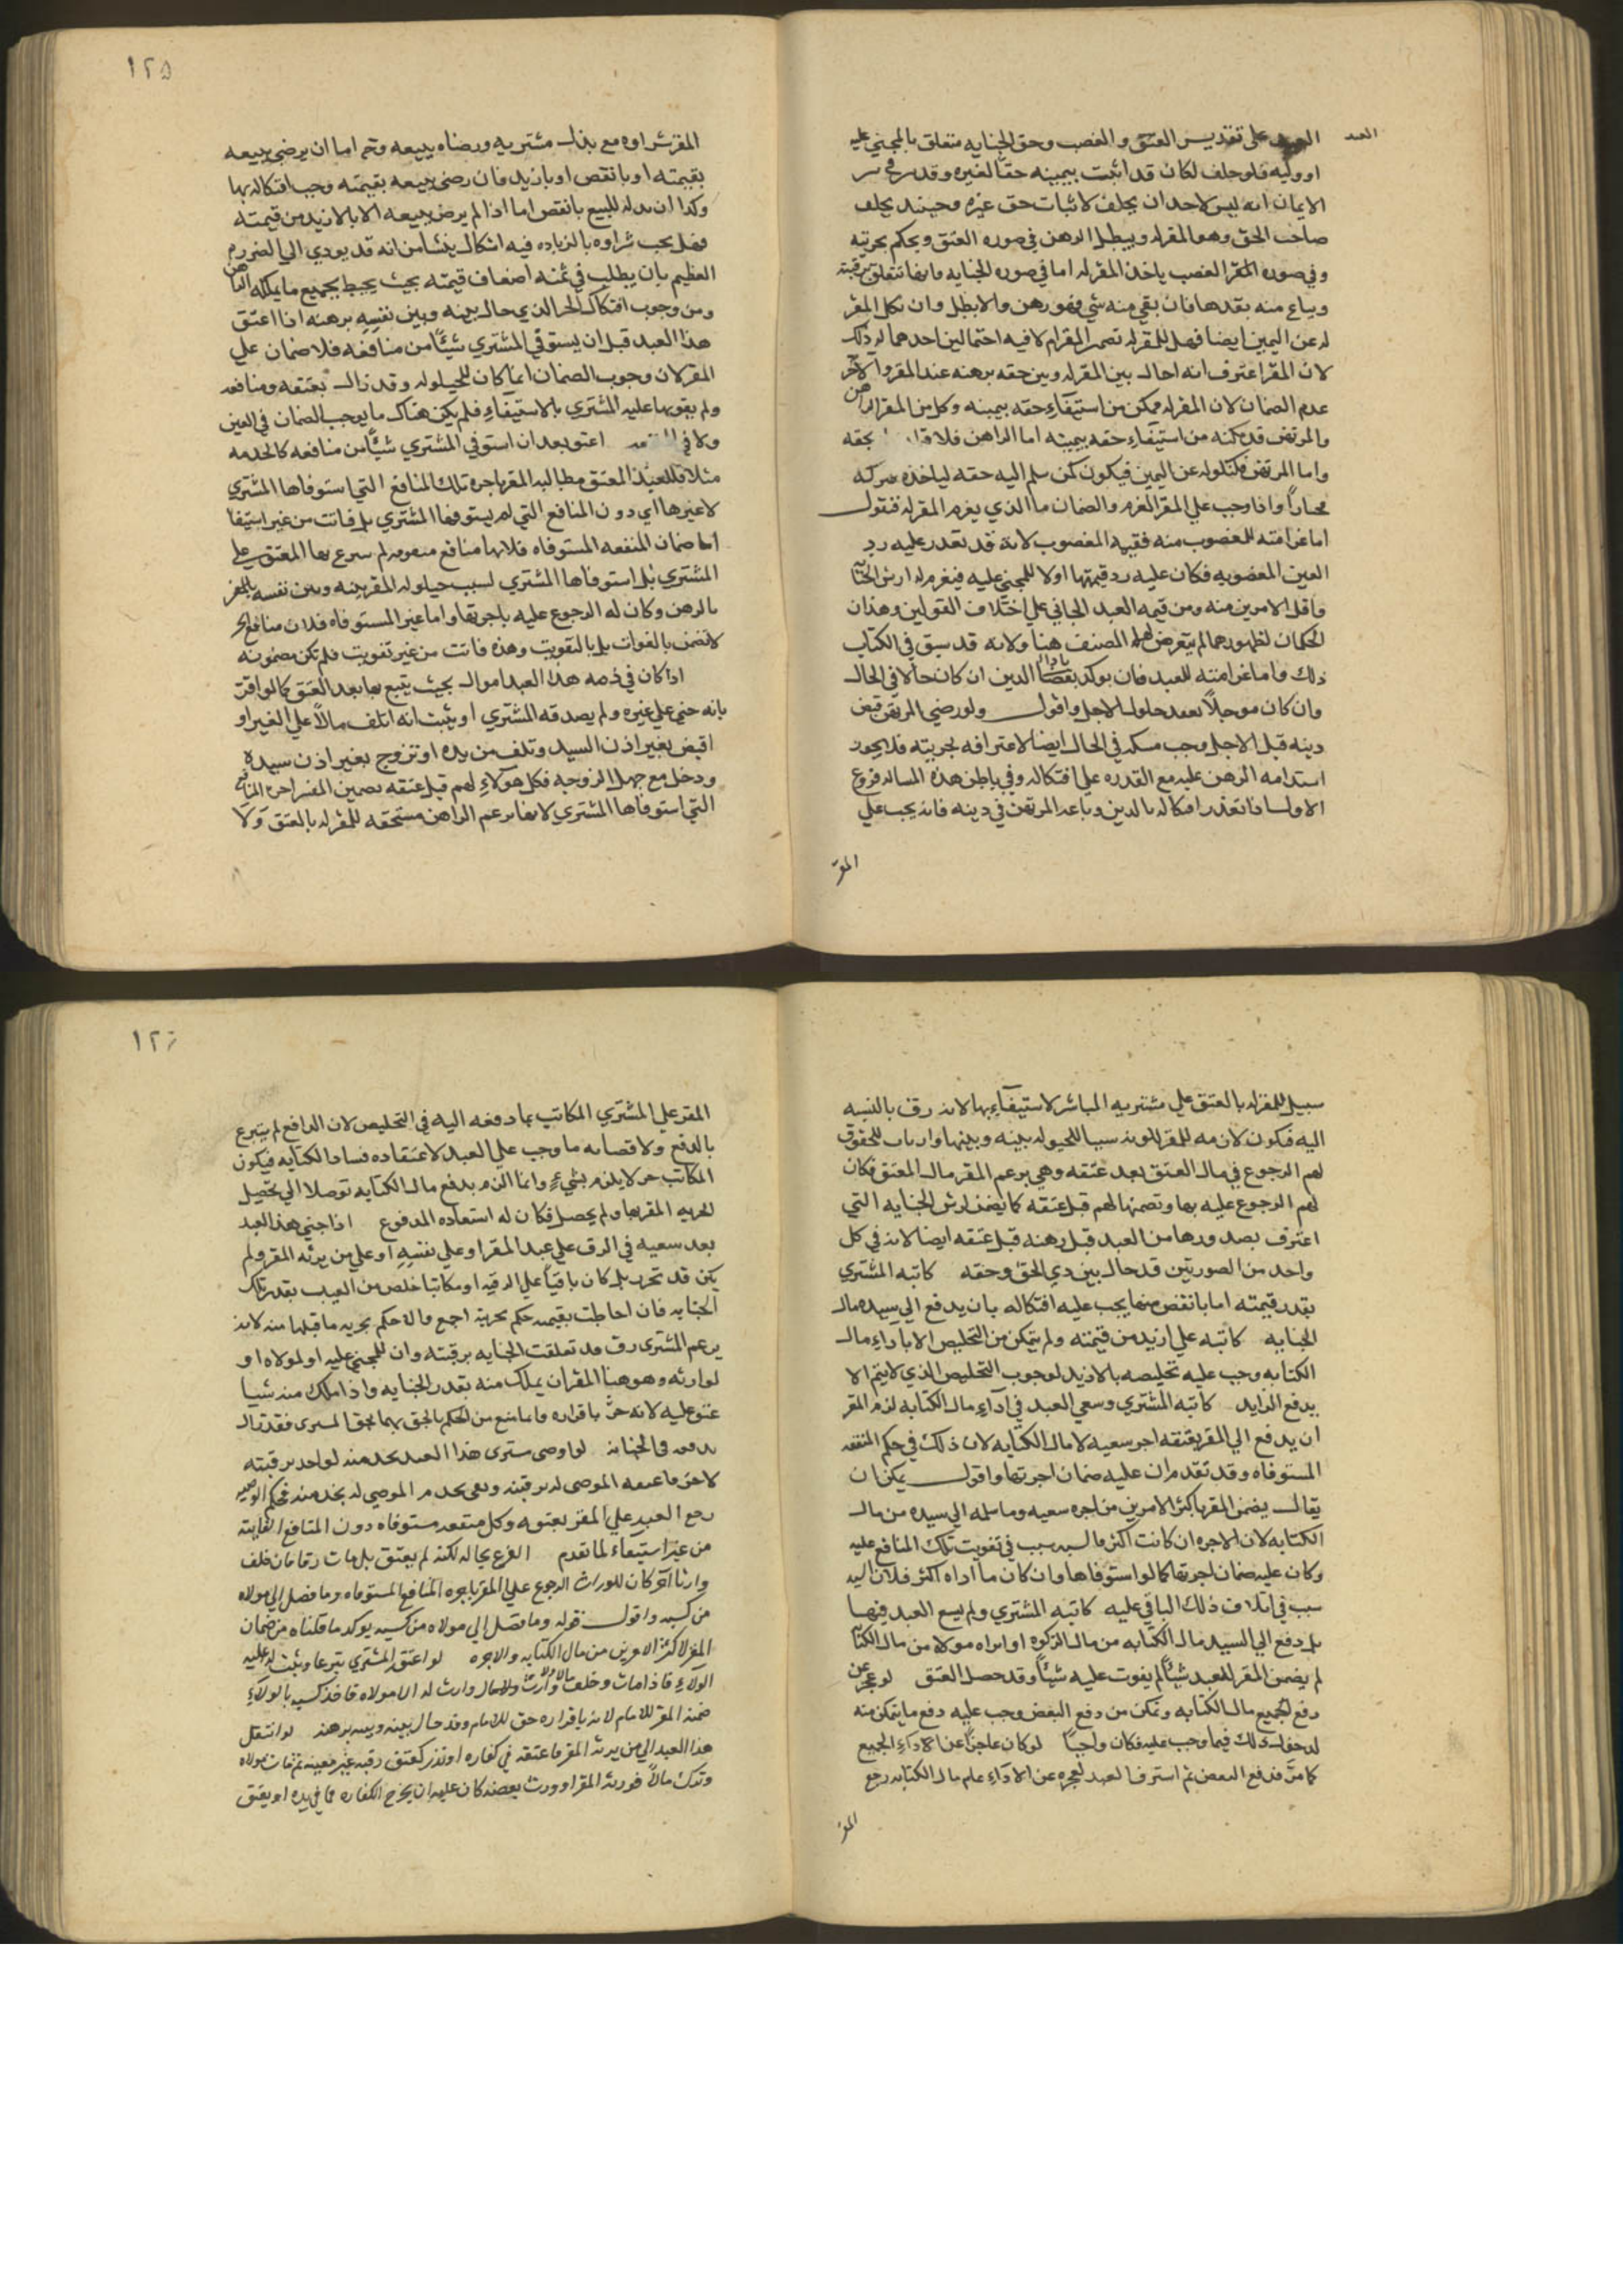 العبد
العبد على تقدير العتق والغصب وحق الجنايه متعلق بالمجني عليه
او وليه فلو حلف لكان قد اثبت بيمينه حقا لغيره وقد
الايمان انه ليس لاحد ان يحلف لاثبات حق غيره وحينئذ يحلف
صاحب الحق وهو المقر له ويبطل الرهن في صوره العتق ويحكم بحريته
وفي صوره الغصب ياخذه المقر له اما في صوره الجنايه فانها تتعلق برقبته
ويباع منه بقدها فان بقي منه شي فهو رهن والا بطل وان نكل المقر
له عن اليمين ايضا فهل للمقر له تضمين المقر ام لا فيه احتمالين احدهما له ذلك
لان المقر اعترف انه احال بين المقر له وبين حقه برهنه عند المقر والاخر
عدم الضمان لان المقر له ممكن من استيفاء حقه بيمينه وكل من المقر الراهن
والمرتهن قد مكنه من استيفاء حقه بيمينه اما الراهن بحقه
واما المرتهن فبنكوله عن اليمين فيكون كمن سلم اليه حقه لياخذه
مختارا واذا وجب على المقر الغرم والضمان ما الذي يغرم المقر له فنقول
اما غرامته للمغصوب منه فقيمه المغصوب لانه قد تعذر عليه رد
العين المغصوبه فكان عليه رد قيمتها اولا للمجني عليه فيغرم له ارش الجنايه
واقل الامرين منه ومن قيمه العبد الجاني على اختلاف القولين وهذان
الحكمان لظهورهما لم يتعرض لهما المصنف هنا ولانه قد سبق في الكتاب
ذلك واما غرامته للعبد فان يوكد بقضا الدين ان كان حالا في الحال
وان كان موجلا بعد حلول الاجل واقول ولو رضي المرتهن قبض
دينه قبل الاجل وجب في الحال ايضا لاعترافه بحريته فلا يجوز
استدامه الرهن عليه مع القدره على افتكاكه وفي باطن هذه المساله فروع
الاول اذا تعذر افتكاكه بالدين وباعه المرتهن في دينه فانه يجب على
المقر
١٢٥
المقر شراوه مع بذل مشتريه ورضاه ببيعه وثم اما ان يرضى ببيعه
بقيمته او بانقص او بازيد فان رضي ببيعه بقيمته وجب افتكاكه بها
وكذا ان بذله للبيع بانقص اما اذا لم يرض ببيعه الا بالازيد من قيمته
فهل يجب شراوه بالزياده فيه اشكال ينشا من انه قد يودي الى الضرر
العظيم بان يطلب في ثمنه اضعاف قيمته بحيث يحيط بجميع ما يملكه الراهن
ومن وجوب افتكاك الحر الذي حال بينه وبين نفسه برهنه اذا اعتق
هذا العبد قبل ان يستوفي المشتري شيئا من منافعه فلا ضمان على
المقر لان وجوب الضمان انما كان للحيلوله وقد زال بعتقه ومنافعه
ولم يفوتها عليه المشتري بالاستيفاء فلم يكن هناك ما يوجب الضمان في العين
ولا في اعتق بعد ان استوفي المشتري شيئا من منافعه كالخدمه
مثلا فللعبد المعتق مطالبه المقر باجره تلك المنافع التي استوفاها المشتري
لا غيرها اي دون المنافع التي لم يستوفها المشتري بل فاتت من غير استيفا
اما ضمان المنفعه المستوفاه فلانها منافع لم بها المعتق على
المشتري بل استوفاها المشتري لسبب حيلوله المقر بينه وبين نفسه
بالرهن وكان له الرجوع عليه باجرتها واما غير المستوفاه فلان منافع الحر
لا تضمن بالفوات بل بالتفويت وهذه فاتت من غير تفويت فلم تكن مضمونه
اذا كان في ذمه هذا العبد اموال بحيث يتبع بها بعد العتق كما لو اقر
بانه جنى على غيره ولم يصدقه المشتري او يثبت انه اتلف مالا على الغير او
اقبض بغير اذن السيد وتلف من يده او تزوج بغير اذن سيده
ودخل مع جهل الزوجه فكل هولاء لهم قبل عتقه تضمين المقر اجره المنافع
التي استوفاها المشتري لانها بزعم الراهن مستحقه للمقر له بالعتق ولا
سبيل للمقر له بالعتق على مشتريه المباشر لاستيفائها لانه رق بالنسبه
اليه فيكون لازمه للمقر لكونه سببا للحيلوله بينه وبينها وارباب الحقوق
لهم الرجوع في مال العتق بعد عتقه وهي بزعم المقر مال المعتق فكان
لهم الرجوع عليه بها وتضمنها لهم قبل عتقه كما يضمن ارش الجنايه التي
اعترف بصدورها من العبد قبل رهنه قبل عتقه ايضا لانه في كل
واحد من الصورتين قد حال بين ذي الحق وحقه كاتبه المشتري
بقدر قيمته اما بانقص منها يجب عليه افتكاكه بان يدفع الى سيده مال
الجنايه كاتبه على ازيد من قيمته ولم يتمكن من التخليص الا باداء مال
الكتابه وجب عليه تخليصه بالازيد لوجوب التخليص الذي لا يتم الا
بدفع الزايد كاتبه المشتري وسعي العبد في اداء مال الكتابه لزم المقر
ان يدفع الى المقر بعتقه اجر سعيه لا مال الكتابه لان ذلك في حكم المنفعه
المستوفاه وقد تقدم ان عليه ضمان اجرتها واقول يمكن ان
يقال يضمن المقر باكثر الامرين من اجره سعيه وما سلمه الى سيده من مال
الكتابه لان الاجره ان كانت اكثر سبب في تفويت تلك المنافع عليه
وكان عليه ضمان اجرتها كما لو استوفاها وان كان ما اداه اكثر فلانه
سبب في اتلاف ذلك الباقي عليه كاتبه المشتري ولم يسع العبد فيها
بل دفع الى السيد مال الكتابه من مال الزكوه او ابراه مولاه من مال الكتابه
لم يضمن المقر للعبد شيئا لم يفوت عليه شيئا وقد حصل العتق لو عجز عن
دفع جميع مال الكتابه وتمكن من دفع البعض وجب عليه دفع ما يتمكن منه
لدخول ذلك فيما وجب عليه فكان واجبا لو كان عاجزا عن اداء الجميع
كما مر فدفع البعض ثم استرق العبد لعجزه عن الاداء علم مال الكتابه رجع
المقر
١٢٦
المقر على المشتري المكاتب بما دفعه اليه في التخليص لان الدافع لم يتبرع
بالدفع ولا قصابه ما وجب على العبد لاعتقاده فساد الكتابه فيكون
المكاتب حر لا يلزم بشيء وانما الزم بدفع مال الكتابه توصلا الى تحصيل
الحريه المقر بها ولم يحصل فكان له استعاده المدفوع اذا جنى هذا العبد
بعد سعيه في الرق على عبد المقر او على نفسه او على من يرثه المقر ولم
يكن قد تحرر بل كان باقيا على الرقيه او مكاتبا خلص من العبد بقدر تلك
الجنايه فان احاطت بقيمه حكم بحريته اجمع والا حكم بحريه ما قبلها منه لانه
بزعم المشتري رق قد تعلقت الجنايه برقبته وان للمجني عليه او لمولاه او
لوارثه وهو هنا المقر ان يملك منه بقدر الجنايه واذا ملك منه شيا
عتق عليه لانه حر باقراره وانما منع من الحكم بالحق بها بحق المشتري فقد زال
بدفعه في الجنايه لو اوصى مشتري هذا العبد بخدمته لواحد برقبته
لاخر فاعتقه الموصى له برقبته وبقي يخدم الموصى له بخدمته بحكم الوصيه
رجع العبد على المقر بعتقه وكل منفعه مستوفاه دون المنافع الفايته
من غير استيفاء لما تقدم الفرع بحاله لكنه لم يعتق بل مات رقا فان خلف
وارثا اخر كان للوارث الرجوع على المقر باجره المنافع المستوفاه وما فضل الى مولاه
من كسبه واقول قوله وما فضل الى مولاه من كسبه يوكد ما قلناه من ضمان
المقر لاكثر الامرين من مال الكتابه والاجره لو اعتق المشتري تبرعا ويثبت له عليه
الولاء فاذا مات وخلف مالا ولا وارث له الا مولاه فاخذ كسبه بالولاء
ضمنه المقر للامام لانه باقراره حق للامام وقد حال بينه وبينه برهنه لو انتقل
هذا العبد الى من يرثه المقر فاعتقه في كفاره او نذر كعتق رقبه غير معينه ثم مات مولاه
وترك مالا فورثه المقر او ورث بعضه كان عليه ان يخرج الكفاره مما في يده او يعتق